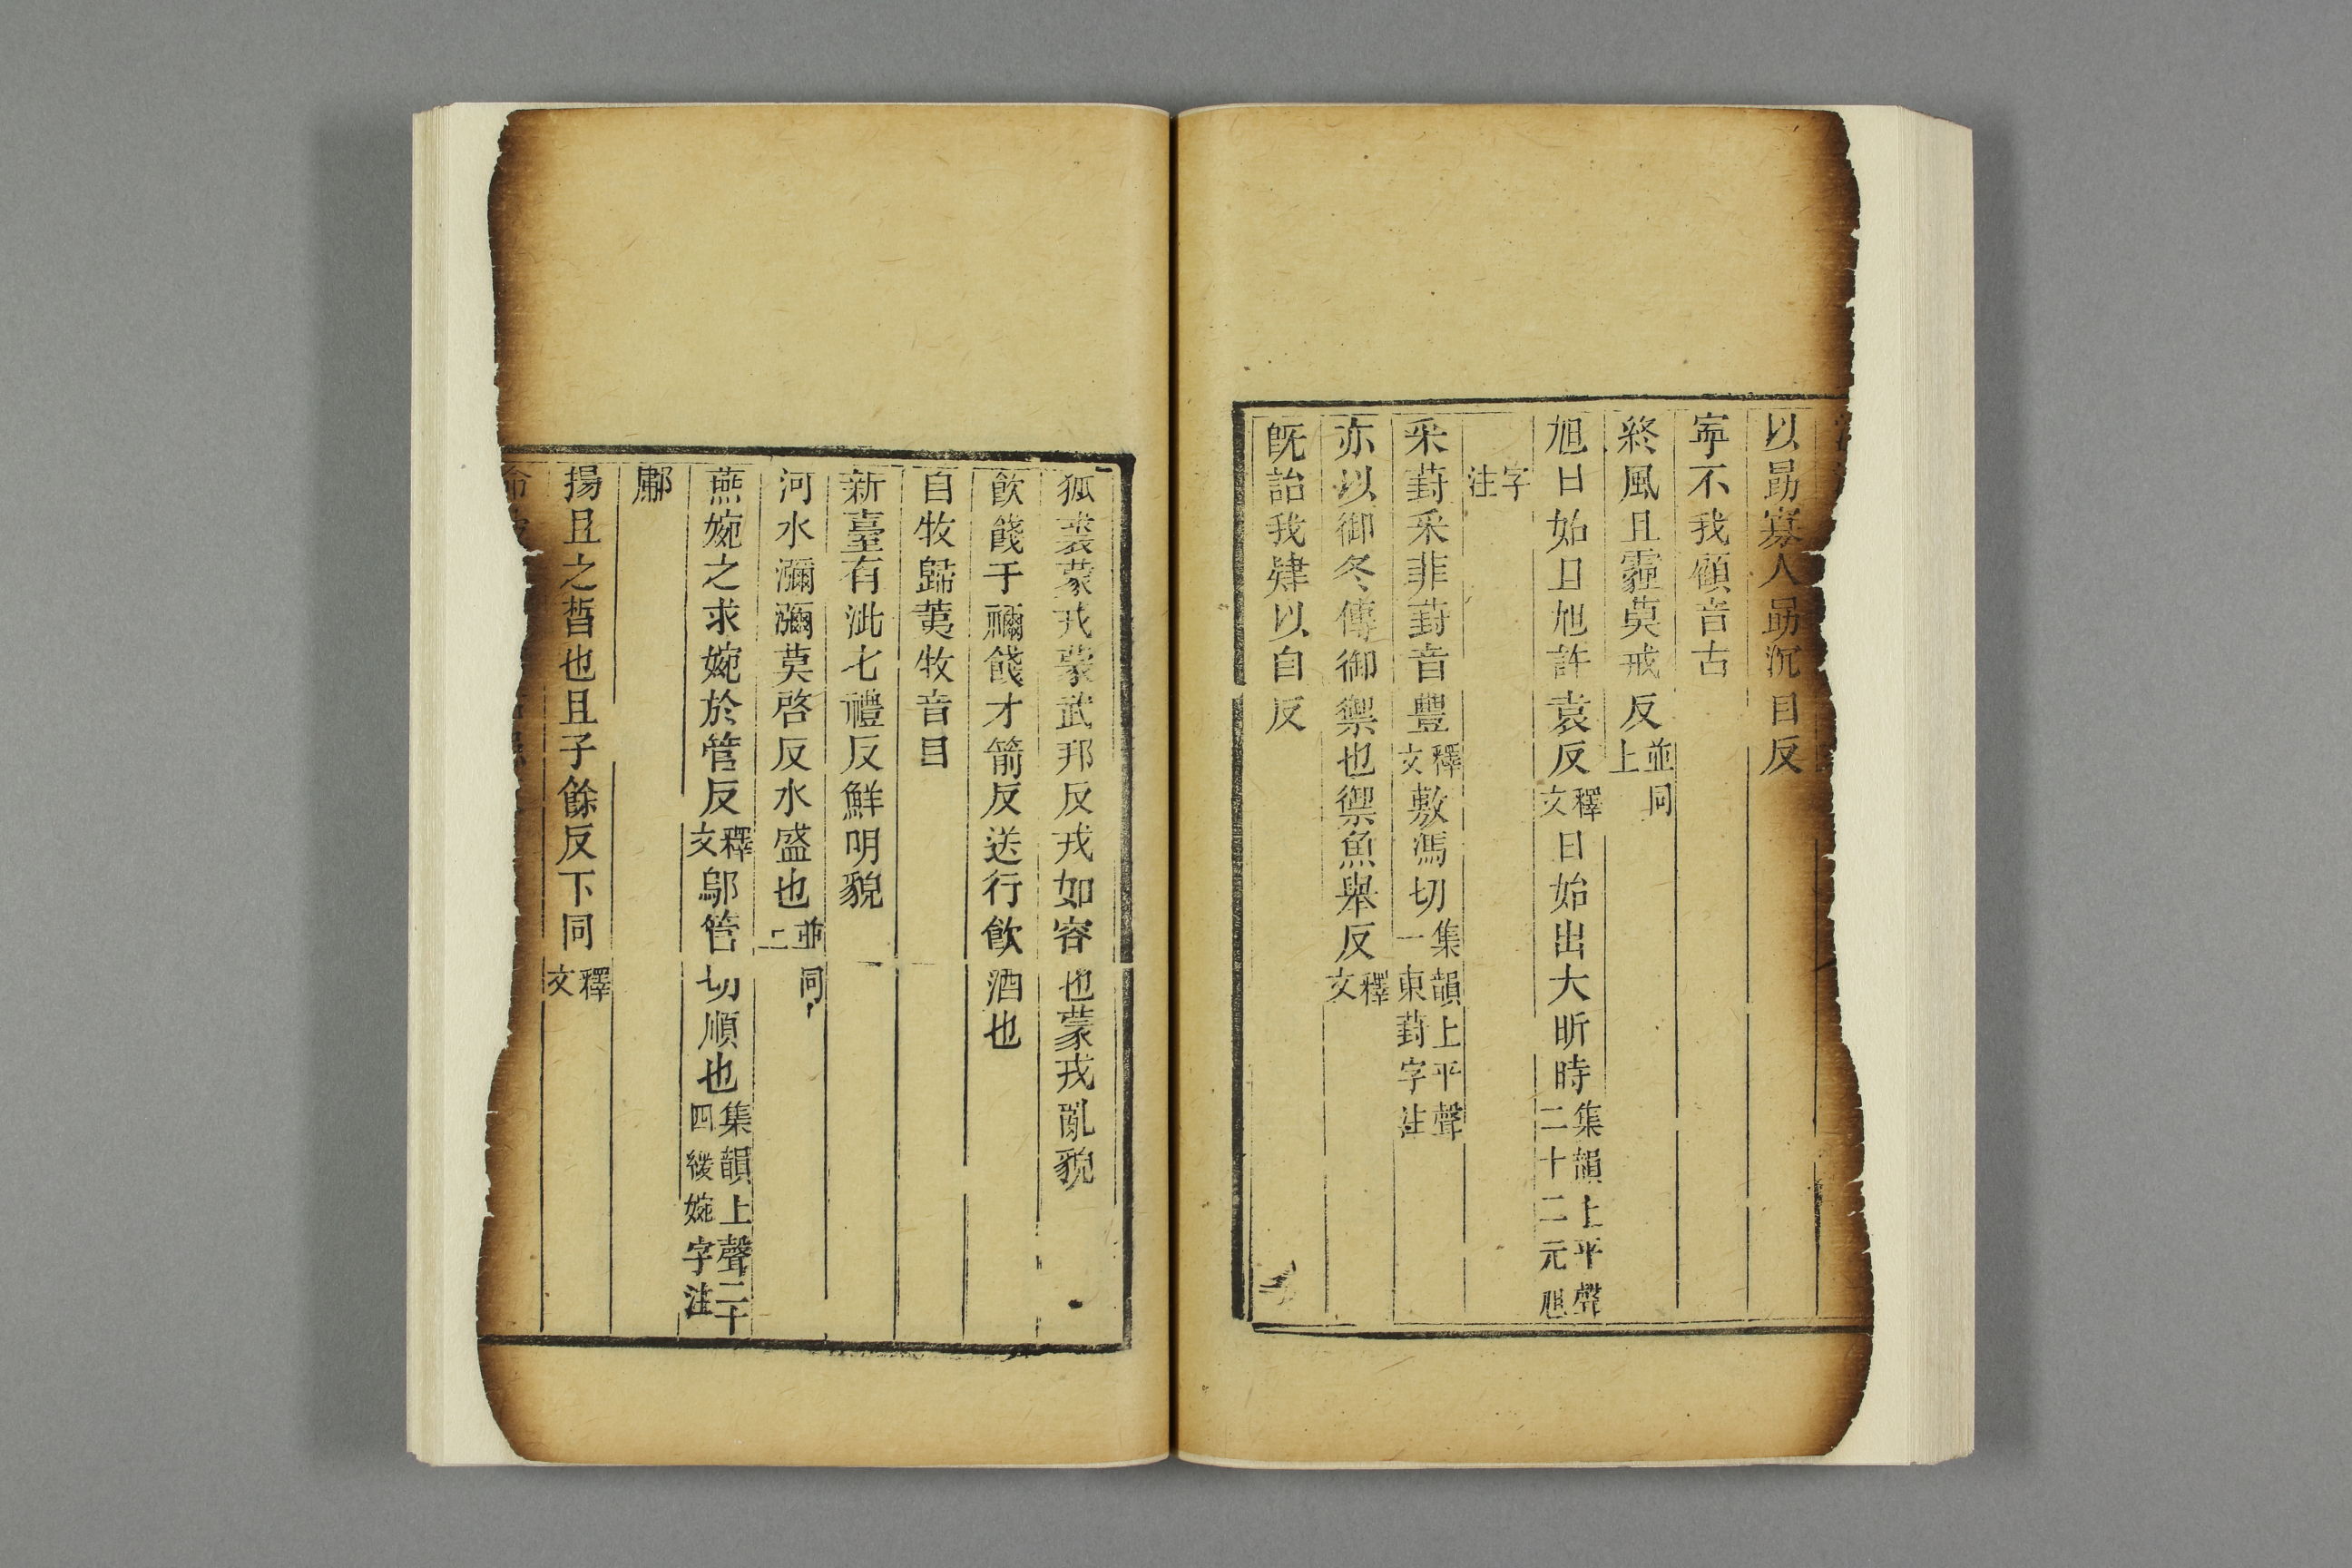 以勗寡人勗沉目反
寜不我顧音古
終風且霾莫戒反並同上
旭日始旦旭許袁反釋文日始出大昕時集韻上平聲二十二元旭
字注
采葑采菲葑音豐釋文敷馮切集韻上平聲一東葑字注
亦以御冬傳御禦也禦魚舉反釋文
旣詒我肄以自反
狐裘蒙戎蒙武邦反戎如容也蒙戎亂貌
飮餞于禰餞才箭反送行飮酒也
自牧歸荑牧音目
新臺有泚七禮反鮮明貌
河水瀰瀰莫啓反水盛也並同上
燕婉之求婉於管反釋文鄔管切順也集韻上聲二十四緩婉字注
鄘
揚且之晳也且子餘反下同釋文